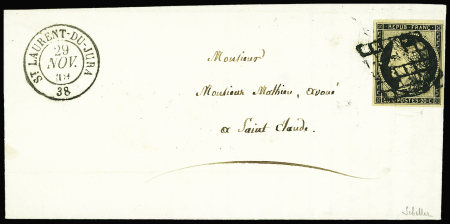 ST LAURENT-DU-JURA
29
NOV.
38
REPUB. FRANC.
POSTES
Monsieur
Monsieur Mathieu, avoué
a Saint Claude.